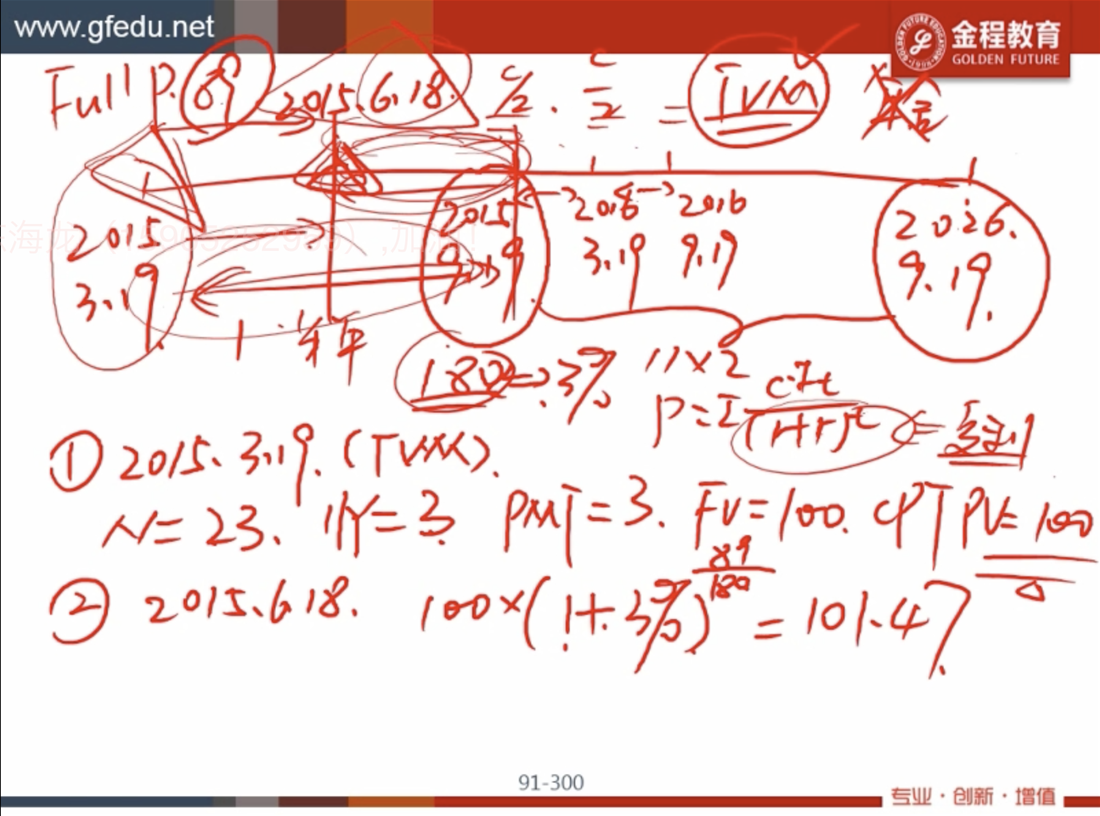 www.gfedu.net
金程教育
GOLDEN FUTURE
Full P. 89 2015.6.18. C/2 . C/2 = TVM
2015 3.19. 2015 9.19 2016 3.19 2016 9.19 2026. 9.19.
1.半年
180 => 3% 11×2
① 2015.3.19. (TVM).
N=23. I/Y=3. PMT=3. FV=100. CPT PV=100
② 2015.6.18. 100×(1+3%)^89/180 = 101.47
91-300
专业·创新·增值